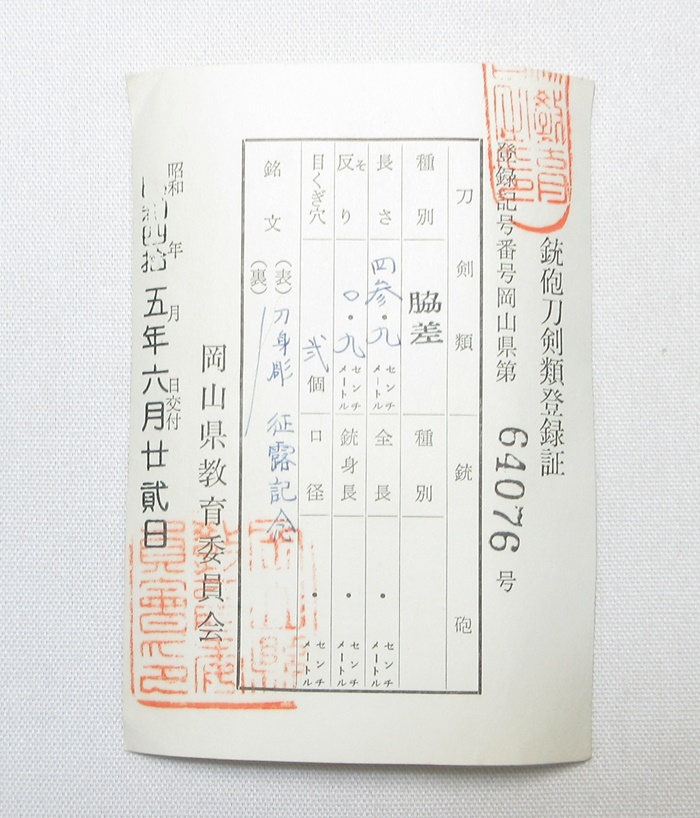 銃砲刀剣類登録証
登録記号番号岡山県第 64076 号
刀剣類 銃砲
種別 脇差 種別
長さ 四参・九 センチメートル 全長 ・ センチメートル
反り そ 〇・九 センチメートル 銃身長 ・ センチメートル
目くぎ穴 弐 個 口径 ・ センチメートル
銘文 (表) 刀身彫 征露記念
(裏)
岡山県教育委員会
昭和 年 月 日交付
四拾五年六月廿貳日